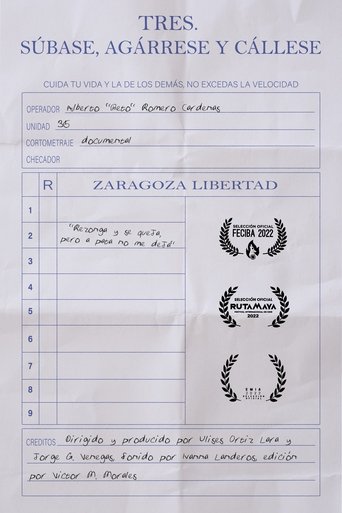 TRES.
SÚBASE, AGÁRRESE Y CÁLLESE
CUIDA TU VIDA Y LA DE LOS DEMÁS, NO EXCEDAS LA VELOCIDAD
OPERADOR Alberto "Beto" Romero Cardenas
UNIDAD 35
CORTOMETRAJE documental
CHECADOR
R ZARAGOZA LIBERTAD
1
2
"Rezonga y se queja,
pero a pata no me deja"
3
4
5
6
7
8
9
SELECCIÓN OFICIAL
FECIBA 2022
SELECCIÓN OFICIAL
RUTAMAYA
FESTIVAL INTERNACIONAL DE CINE
2022
SMIA
2022
CREDITOS Dirigido y producido por Ulises Ortiz Lara y
Jorge G. Venegas, Sonido por Ivanna Landeros, edición
por Victor M. Morales